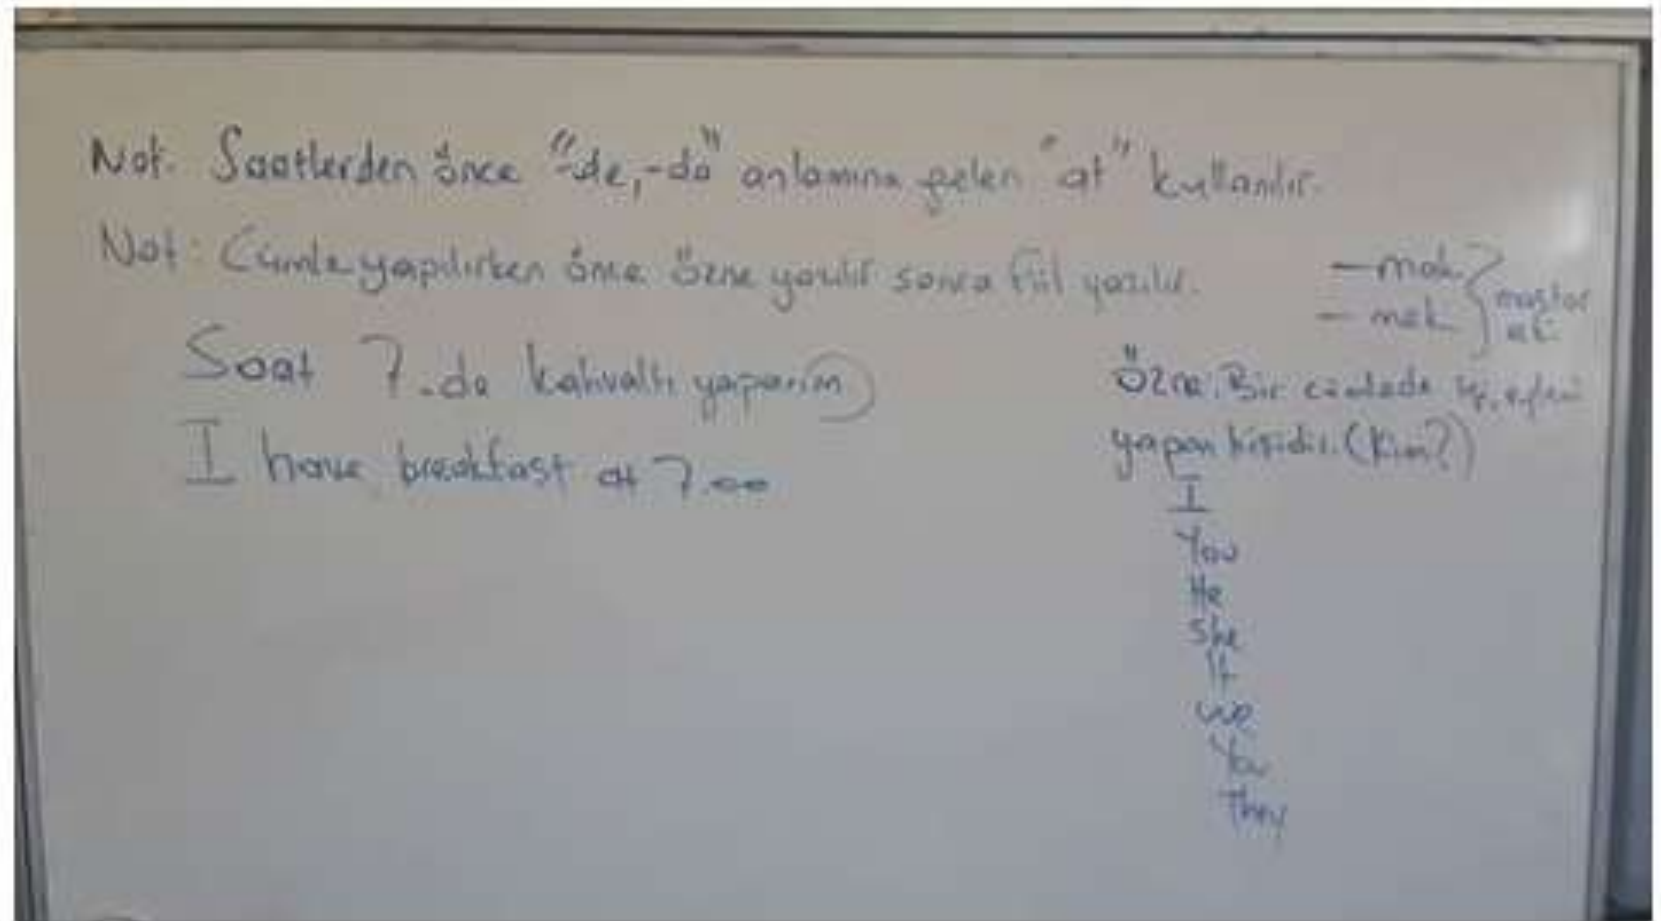 Not. Saatlerden önce "-de,-da" anlamına gelen "at" kullanılır.
Not: Cümle yapılırken önce özne yazılır sonra fiil yazılır.
-mak
-mek } mastar eki
Saat 7.de kahvaltı yaparım
I have breakfast at 7.00
Özne: Bir cümlede işi, eylemi
yapan kişidir. (Kim?)
I
You
He
She
It
we
You
They